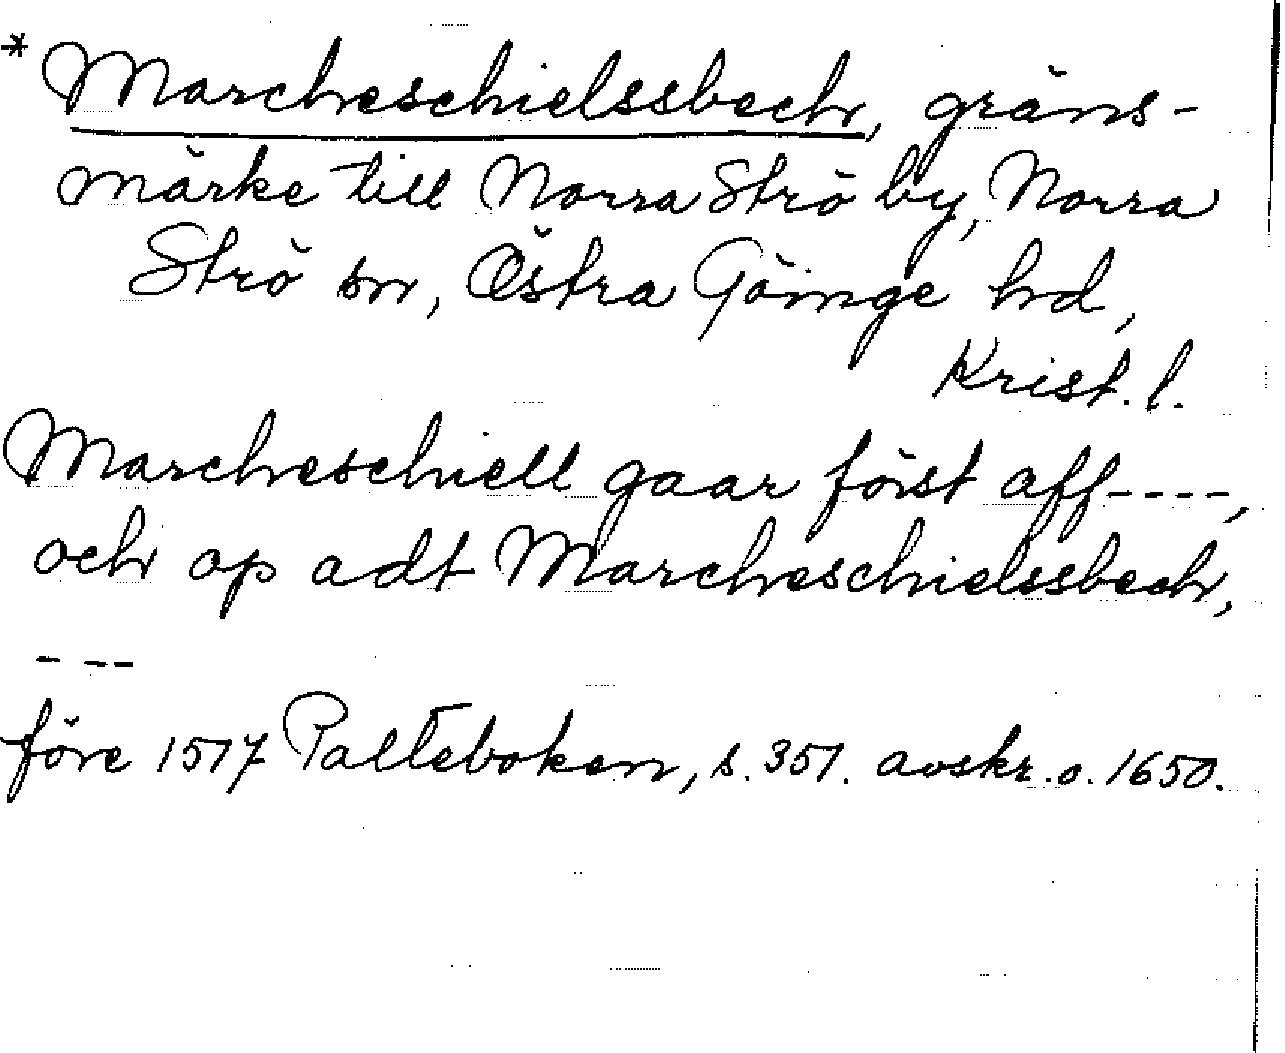 *Marcheschielssbech, gräns-
märke till Norra Strö by, Norra
Strö sn, Östra Göinge hd,
Krist. l.
Marcheschiell gaar först aff----,
och op adt Marcheschielssbech,
- --
före 1517 Palteboken, s. 351. avskr. o. 1650.